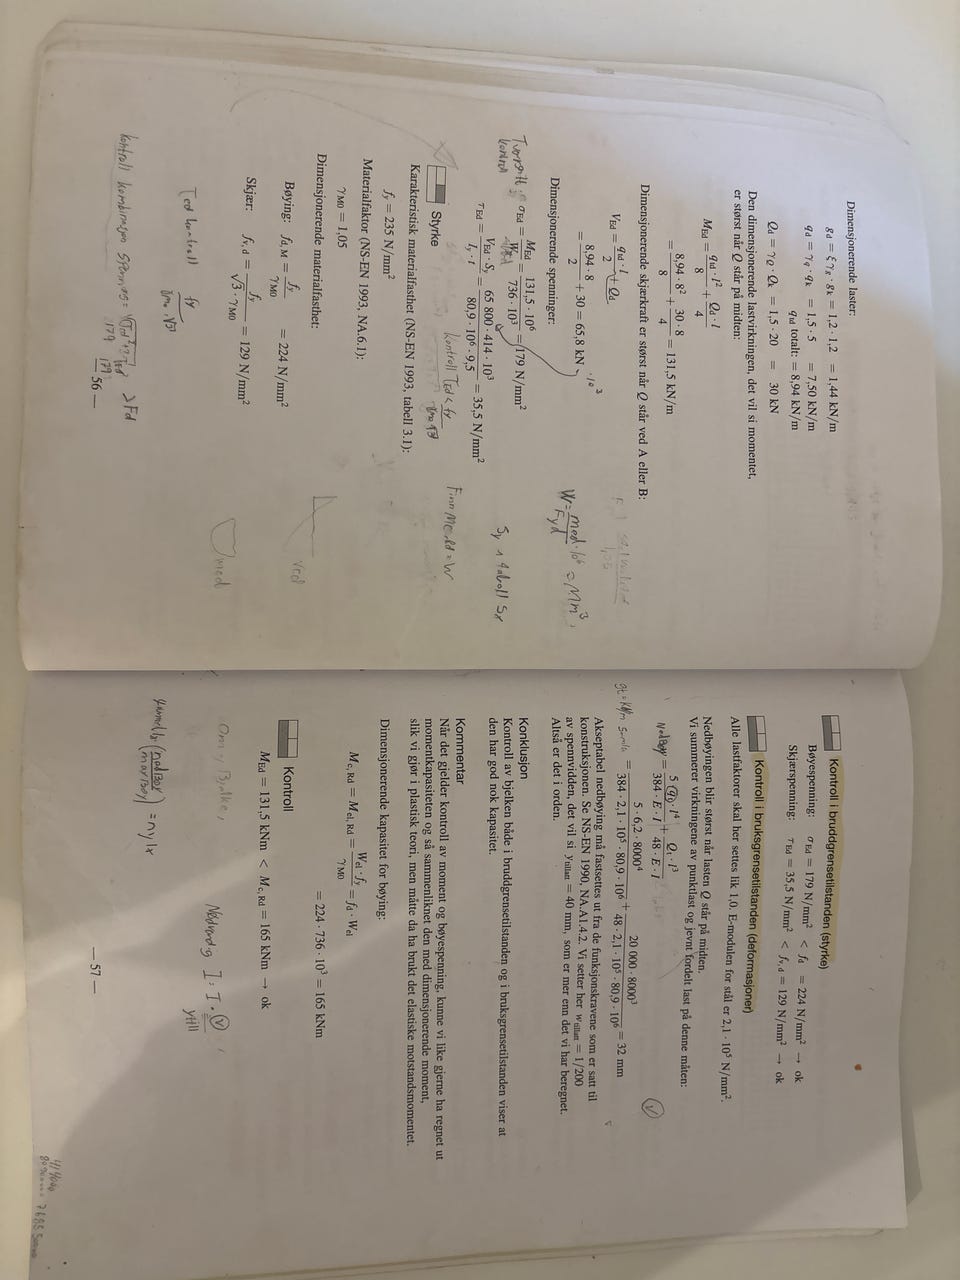 Dimensjonerende laster:
g_d = ξγ_g · g_k = 1,2 · 1,2 = 1,44 kN/m
q_d = γ_q · q_k = 1,5 · 5 = 7,50 kN/m
q_td totalt: = 8,94 kN/m
Q_d = γ_Q · Q_k = 1,5 · 20 = 30 kN
Den dimensjonerende lastvirkningen, det vil si momentet,
er størst når Q står på midten:
M_Ed = q_td · l²/8 + Q_d · l/4
= 8,94 · 8²/8 + 30 · 8/4 = 131,5 kN/m
Dimensjonerende skjærkraft er størst når Q står ved A eller B:
V_Ed = q_td · l/2 + Q_d
= 8,94 · 8/2 + 30 = 65,8 kN
·10³
Dimensjonerende spenninger:
σ_Ed = M_Ed/W = 131,5 · 10⁶/736 · 10³ = 179 N/mm²
τ_Ed = V_Ed · S_y/I_y · t = 65 800 · 414 · 10³/80,9 · 10⁶ · 9,5 = 35,5 N/mm²
W = med · 10⁶/Fyd = Mm³
Kontroll Ted < fy
Finn Me Rd = W
Styrke
Karakteristisk materialfasthet (NS-EN 1993, tabell 3.1):
f_y = 235 N/mm²
Materialfaktor (NS-EN 1993, NA.6.1):
γ_M0 = 1,05
Dimensjonerende materialfasthet:
Bøying: f_d,M = f_y/γ_M0 = 224 N/mm²
Skjær: f_v,d = f_y/√3 · γ_M0 = 129 N/mm²
ved
med
Ted kontroll
kontroll kombinasjon
— 56 —
Kontroll i bruddgrensetilstanden (styrke)
Bøyespenning: σ_Ed = 179 N/mm² < f_d = 224 N/mm² → ok
Skjærspenning: τ_Ed = 35,5 N/mm² < f_v,d = 129 N/mm² → ok
Kontroll i bruksgrensetilstanden (deformasjoner)
Alle lastfaktorer skal her settes lik 1,0. E-modulen for stål er 2,1 · 10⁵ N/mm².
Nedbøyingen blir størst når lasten Q står på midten.
Vi summerer virkningene av punktlast og jevnt fordelt last på denne måten:
Nedbøy
= 5 · 6,2 · 8000⁴/384 · 2,1 · 10⁵ · 80,9 · 10⁶ + 20 000 · 8000³/48 · 2,1 · 10⁵ · 80,9 · 10⁶ = 32 mm
Akseptabel nedbøying må fastsettes ut fra de funksjonskravene som er satt til
konstruksjonen. Se NS-EN 1990, NA.A1.4.2. Vi setter her w_tillatt = 1/200
av spennvidden, det vil si y_tillatt = 40 mm, som er mer enn det vi har beregnet.
Altså er det i orden.
Konklusjon
Kontroll av bjelken både i bruddgrensetilstanden og i bruksgrensetilstanden viser at
den har god nok kapasitet.
Kommentar
Når det gjelder kontroll av moment og bøyespenning, kunne vi like gjerne ha regnet ut
momentkapasiteten og så sammenliknet den med dimensjonerende moment,
slik vi gjør i plastisk teori, men måtte da ha brukt det elastiske motstandsmomentet.
Dimensjonerende kapasitet for bøying:
M_c,Rd = M_el,Rd = W_el · f_y/γ_M0 = f_d · W_el
= 224 · 736 · 10³ = 165 kNm
Kontroll
M_Ed = 131,5 kNm < M_c,Rd = 165 kNm → ok
Nødvendig I: I · V/ytill
= ny Ix
— 57 —